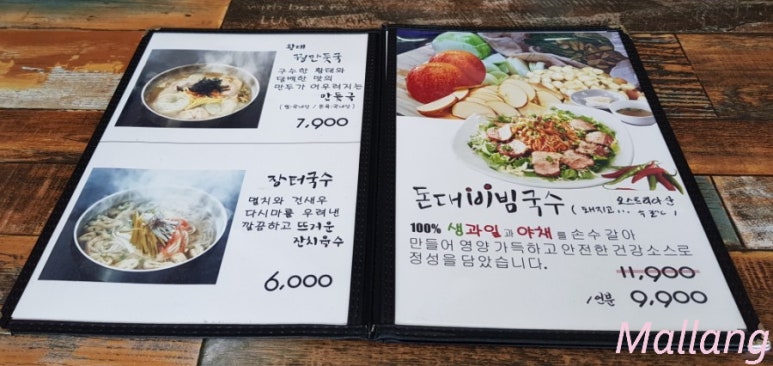 황태
떡만둣국
구수한 황태와
담백한 맛의
만두가 어우러지는
만둣국
7,900
장터국수
멸치와 건새우
다시마를 우려낸
깔끔하고 뜨거운
잔치육수
6,000
돈대비빔국수 (돼지고... 오스트리아산
100% 생과일과 야채를 손수 갈아
만들어 영양 가득하고 안전한 건강소스로
정성을 담았습니다.
11,900
1인분 9,900
Mallang